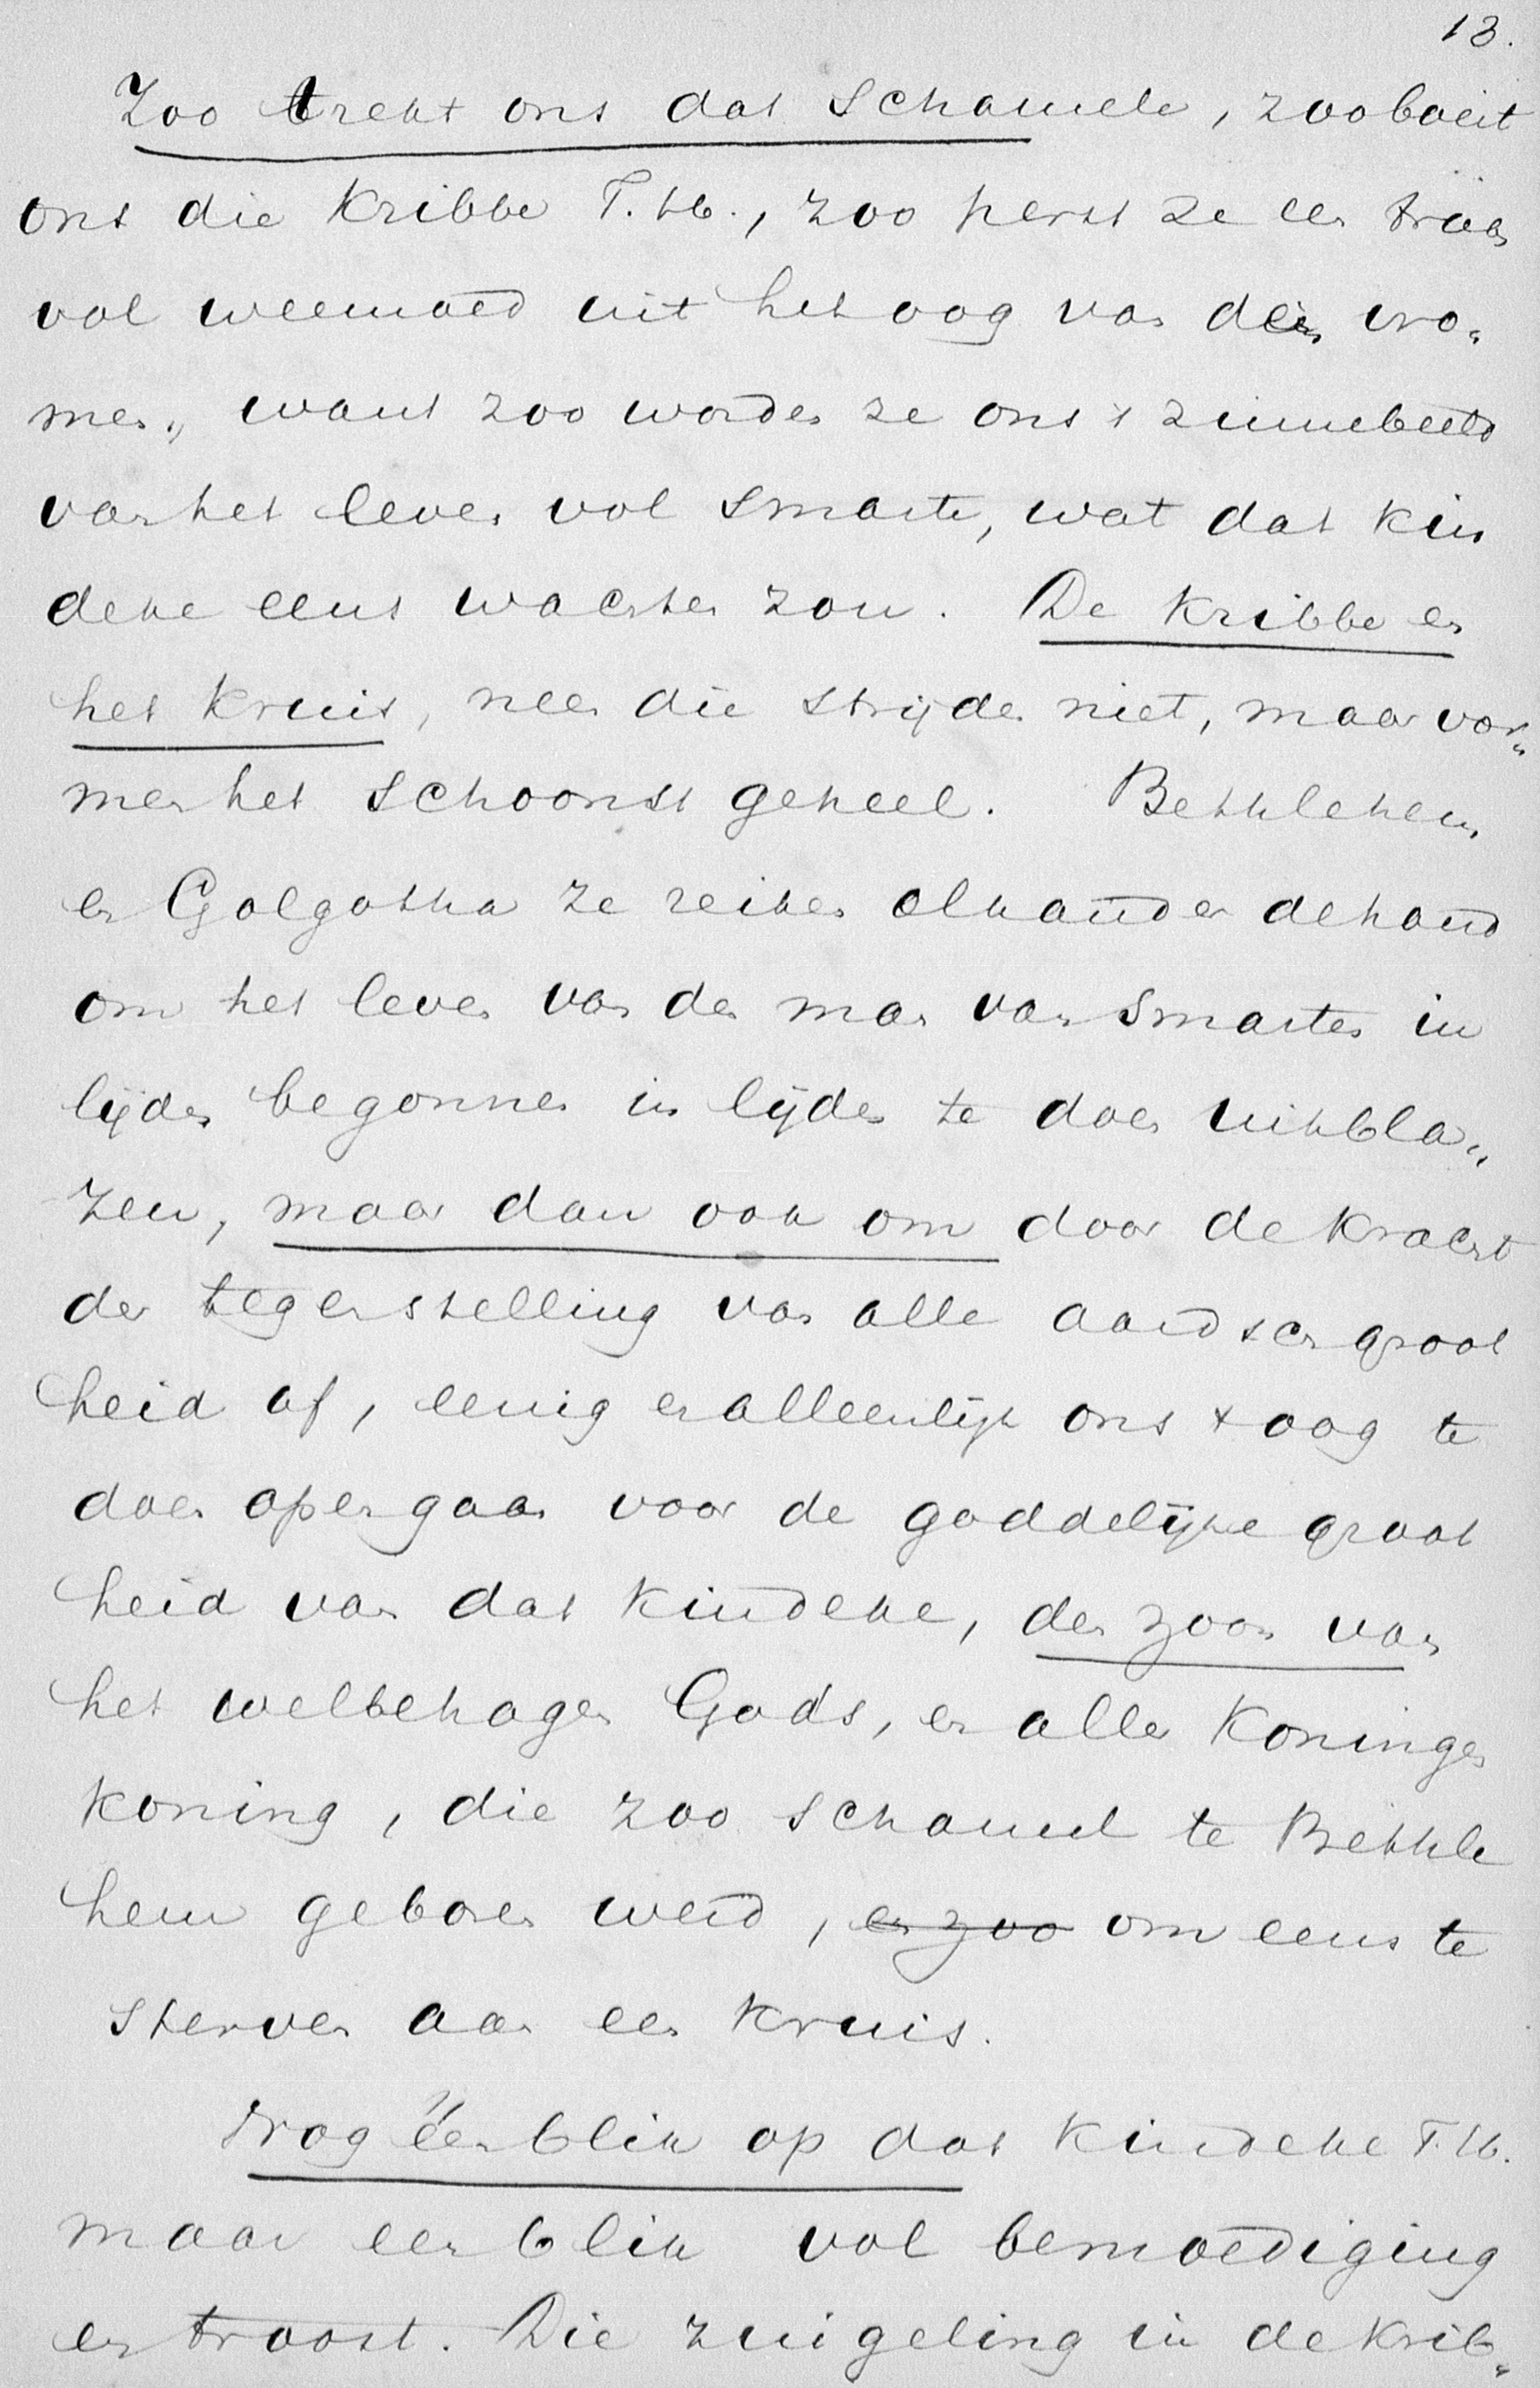 13.
Zoo trekt ons dat schamele, zoo boeit
ons die Kribbe T. H., zoo perst ze een traan
vol weemoed uit het oog van den vro„
men, want zoo worden ze ons 't zinnebeeld
van het leven vol smarte, wat dat kin
deke eens wachten zou. De Kribbe en
het Kruis, neen die strijden niet, maar vor„
men het schoonst geheel. Bethlehem
en Golgotha ze reiken elkander de hand
om het leven van den man van smarten in
lijden begonnen in lijden te doen uitbla„
zen, maar dan ook om door de kracht
der tegenstelling van alle aardsch groot
heid af, eenig en alleenlijk ons 't oog te
doen opengaan voor de goddelijke groot
heid van dat Kindeke, den zoon van
het welbehagen Gods, en aller Koningen
Koning, die zoo schamel te Bethle
hem geboren werd, en zoo om eens te
sterven aan een Kruis.
Nog één blik op dat Kindeke T. H.
maar een blik vol bemoediging
en troost. Die zuigeling in de Krib„